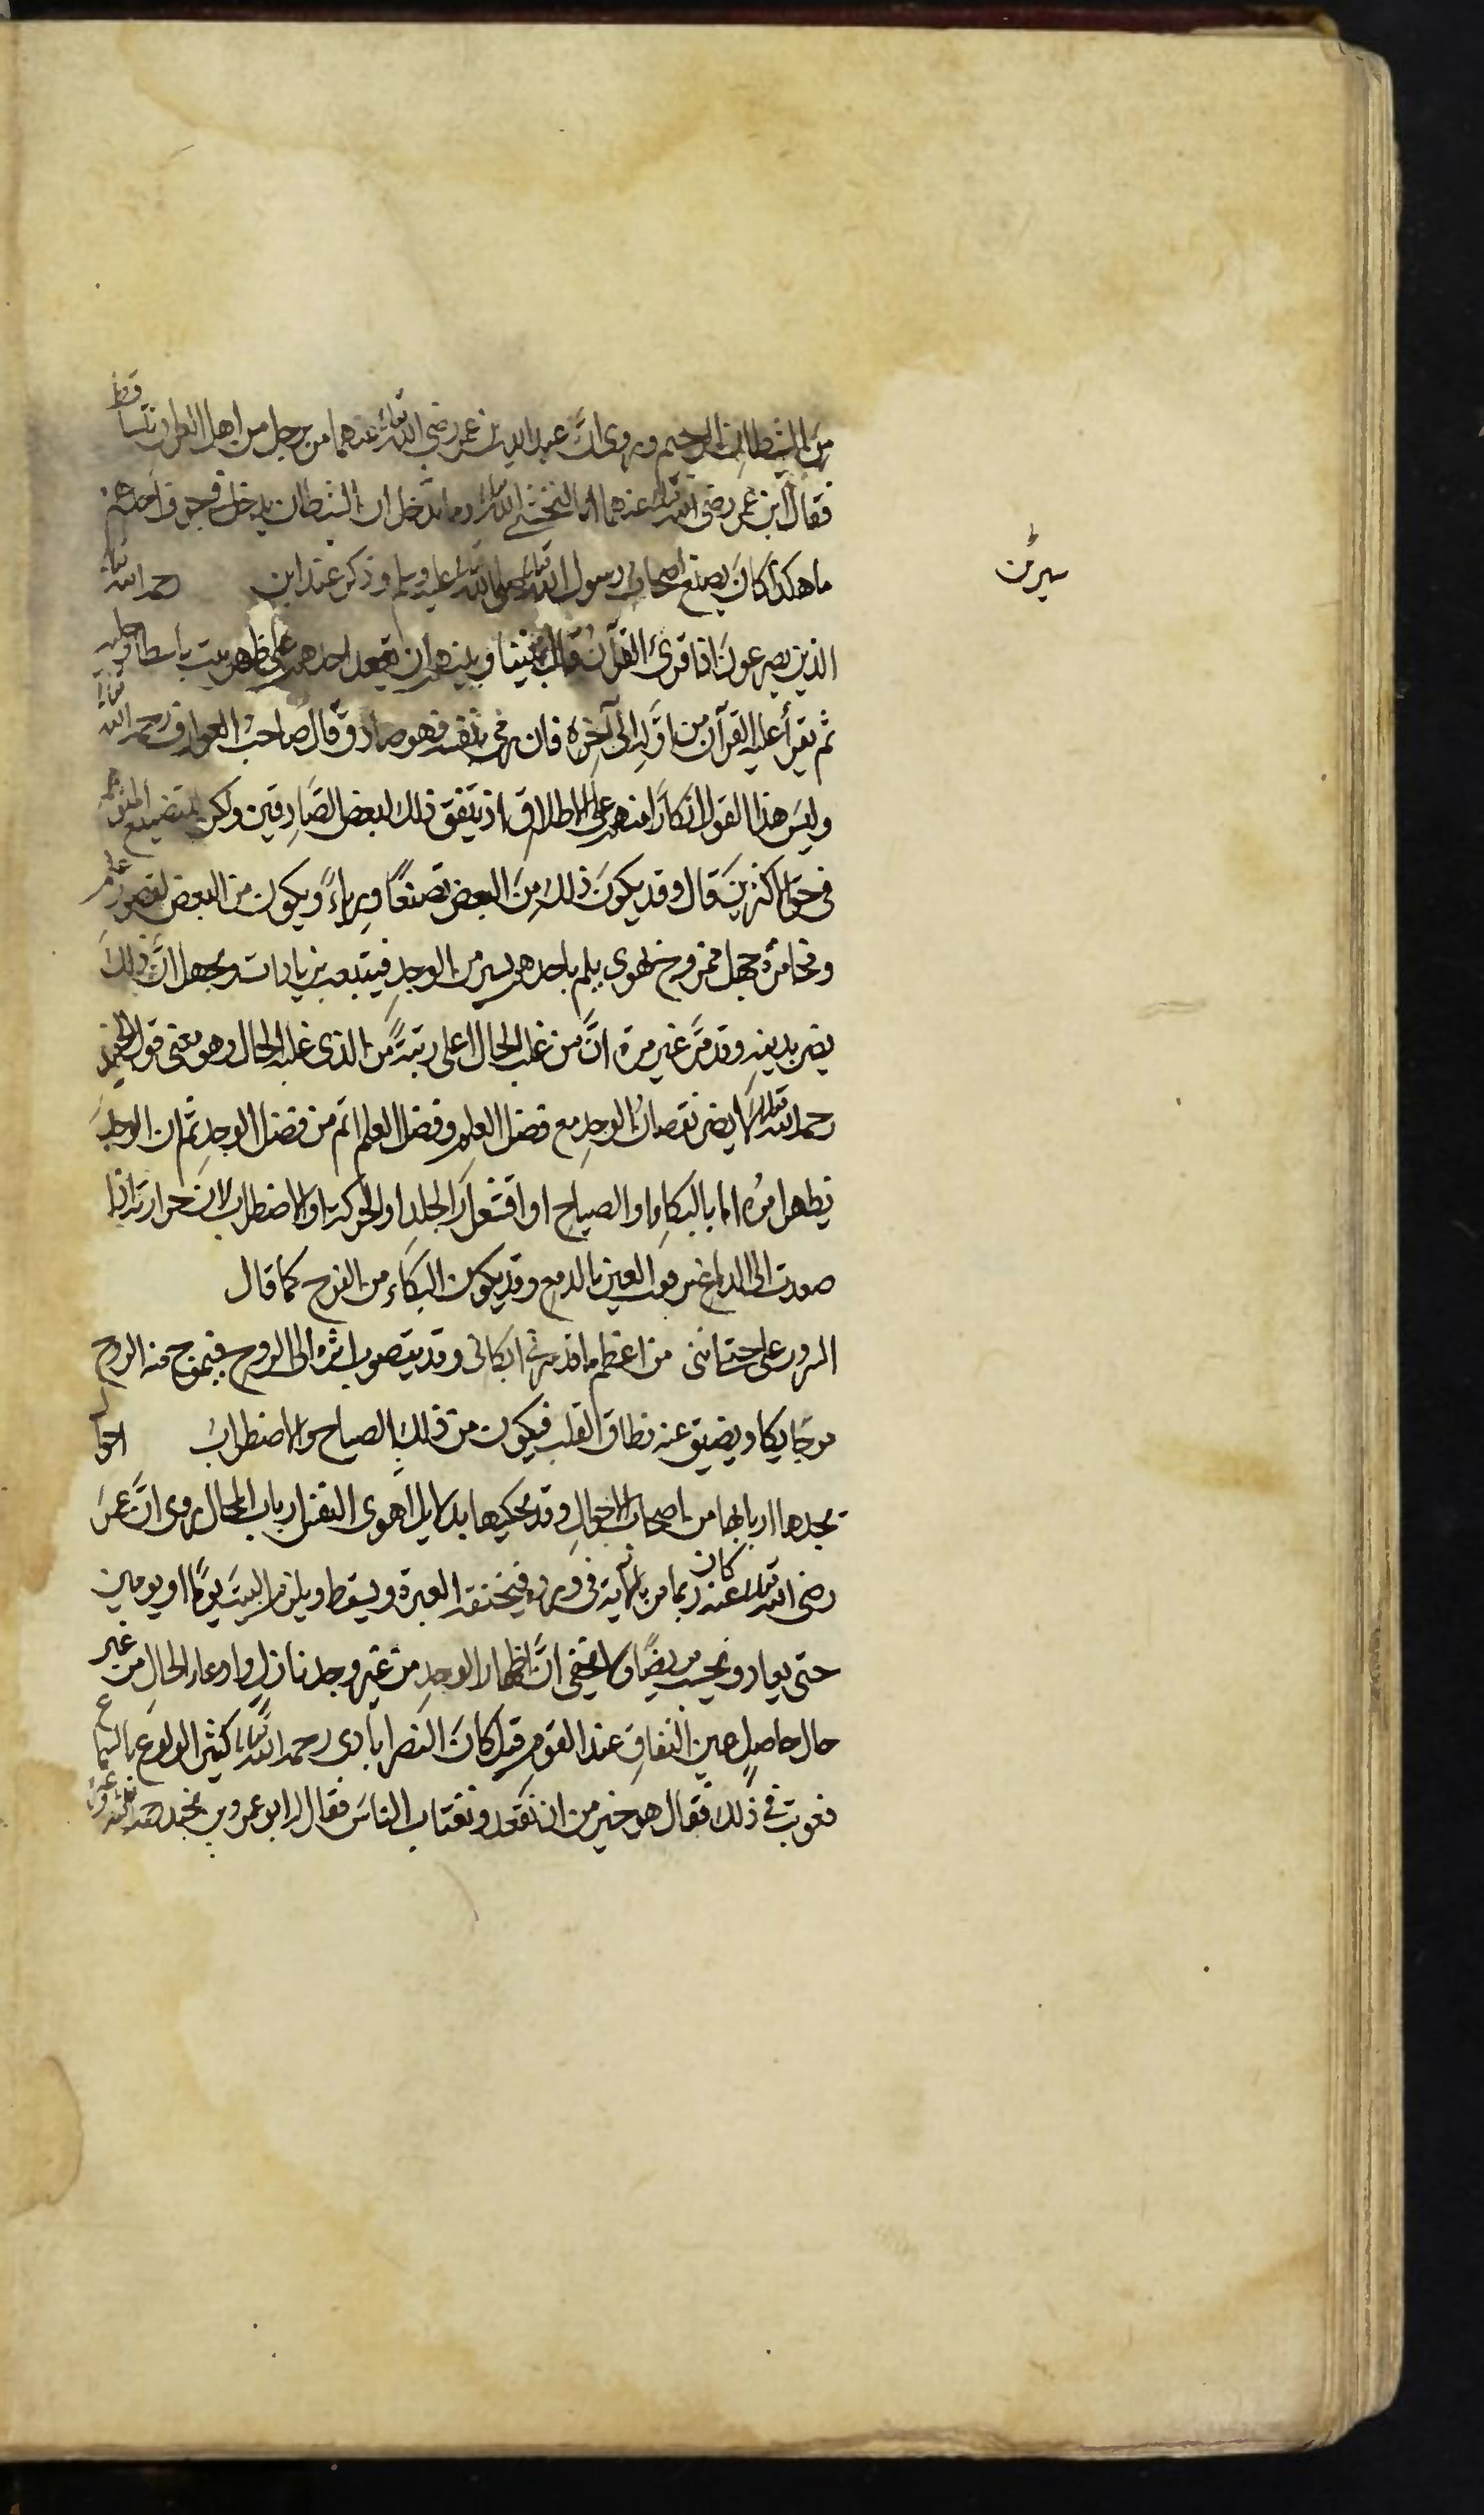 من الشيطان الرجيم وروى انّ عبد الله بن عمر رضى الله تعالى عنهما مر برجل من اهل العراق يتساقط
فقال ابن عمر رضى الله تعالى عنهما انا لنخشى الله تعالى وما ان الشيطان يدخل فى جوف احدهم
ما هكذا كان يصنع اصحاب رسول الله تعالى صلى الله تعالى عليه وسلم وذكر عند ابن رحمه الله تعالى
سيرين
الذين يصرعون اذا قرئ القرآن قال بيننا وبينهم ان يقعد احدهم على ظهر بيت باسطا رجليه
ثم يقرأ عليه القرآن من اوّله الى آخره فان رمى بنفسه فهو صادق قال صاحب العوارف رحمه الله تعالى
وليس هذا القول انكارًا منهم على الاطلاق اذ يتفق ذلك لبعض الصّادقين ولكن للتصنيع المتوهم
فى حق الاكثرين قال وقد يكون ذلك من البعض تصنعًا ورياءً ويكون من البعض لقصور علم
ومخامرة جهل ممزوج بهوى يلم باحدهم يسير من الوجد فيتبعه بزيادات ويجهل انّ ذلك
يضر بدينه وقد مرّ غير مرة انّ من غلب الحال اعلى رتبةً من الذى غلبه الحال وهو معنى قول الجنيد
رحمه الله تعالى لا يضر نقصان الوجد مع فضل العلم وفضل العلم اتم من فضل الوجد ثم ان الوجد
يظهر امره اما بالبكاء او الصياح او اقشعرار الجلد او الحركة او الاضطراب لان حرارته اذا
صعدت الى الدماغ العين بالدمع وقد يكون البكاء من الفرح كما قال
السرور علىّ حتى اننى من اعظم ما قد سرنى ابكانى وقد يتصوب اثره الى الروح فيموج منه الروح
موجًا يكاد يضيق عنه نطاق القلب فيكون من ذلك الصياح والاضطراب احوا
ل
يجدها اربابها من اصحاب الاحوال وقد يحكيها بدلايل هوى النفس ارباب المحال روى انّ عمر
رضى الله تعالى عنه كان ربما مر بآية فى ورده فيخنقه العبرة ويسقط ويلزم البيت يومًا او يومين
حتى يعاد ويحسب مريضًا ولا يخفى انّ اظهار الوجد من غير وجد نازل او ادعاء الحال من غير
حال حاصل عين النفاق عند القوم قيل كان النصرابادى رحمه الله تعالى كثير الولوع بالسماع
فعوتب فى ذلك فقال هو خير من ان نقعد ونغتاب الناس فقال له ابو عمرو بن نجيد رحمه الله تعالى